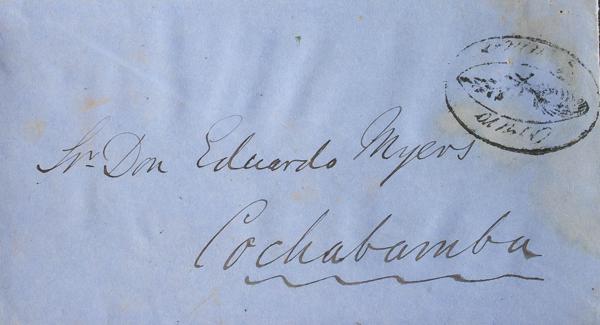 Sr. Don Eduardo Myers
Cochabamba